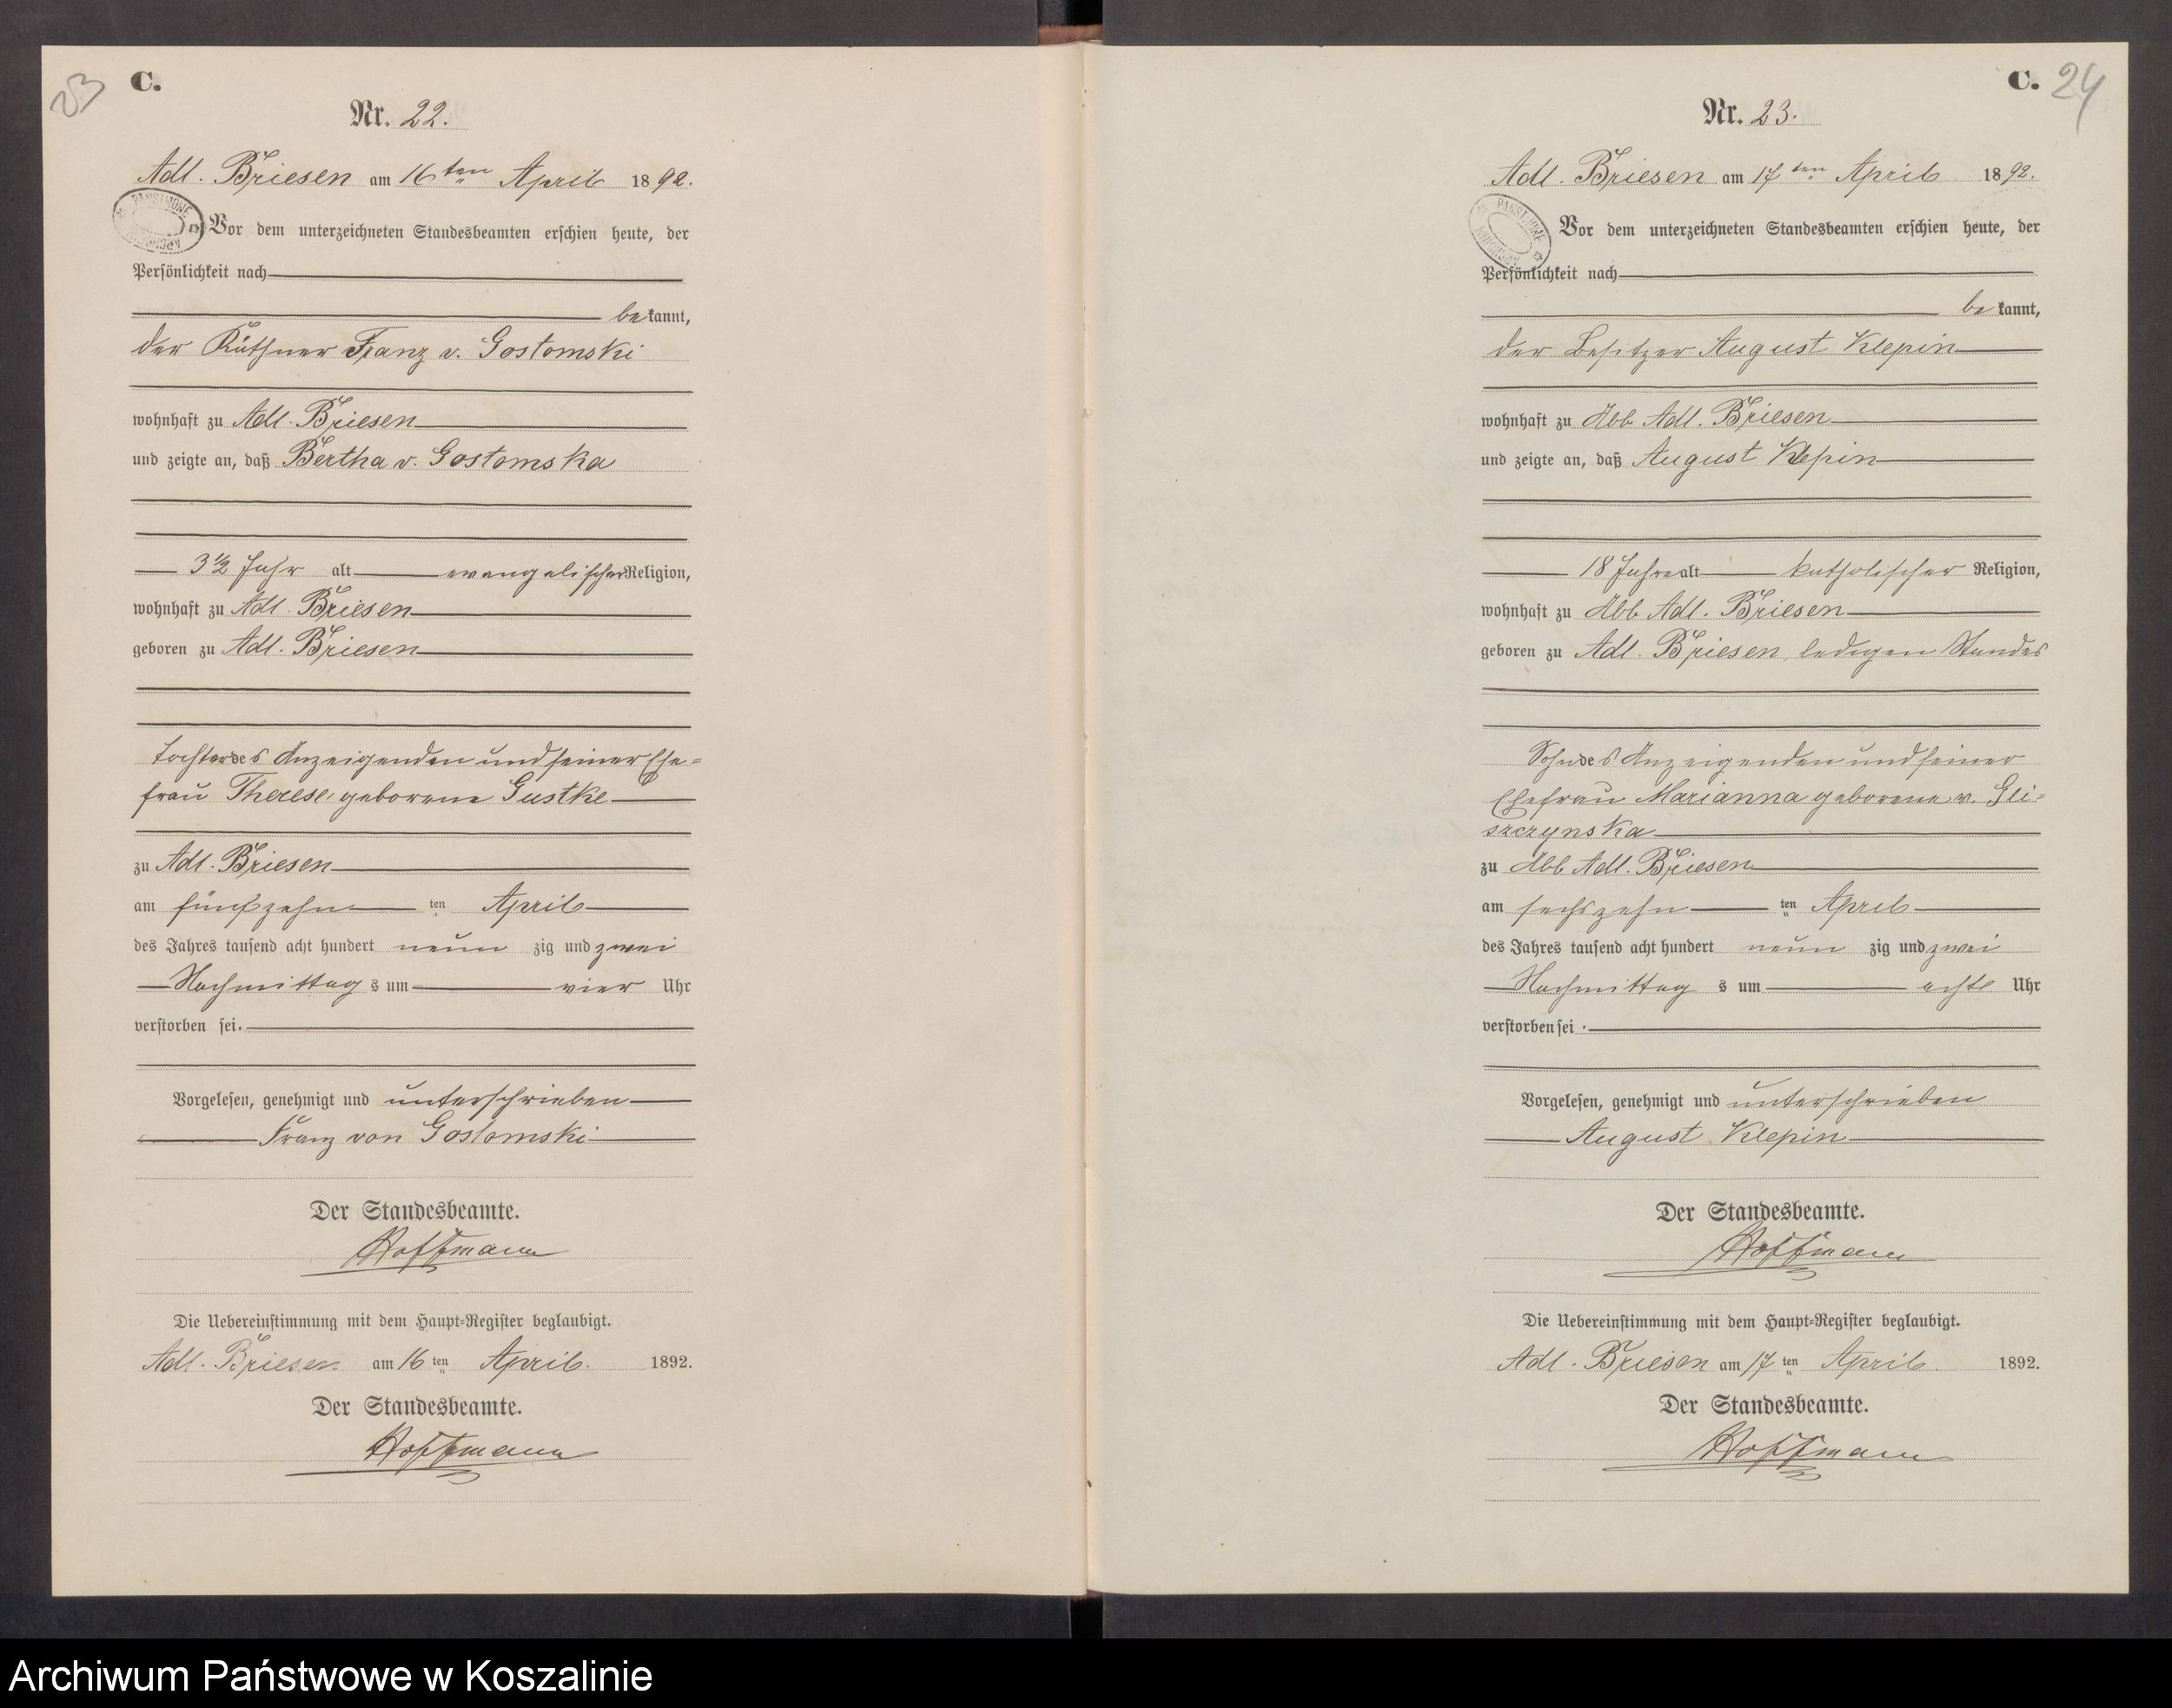 23
C.
Nr. 22.
Adl. Briesen am 16ten April 1892.
Vor dem unterzeichneten Standesbeamten erschien heute, der
Persönlichkeit nach
bekannt,
der Käthner Franz v. Gostomski
wohnhaft zu Adl. Briesen
und zeigte an, daß Bertha v. Gostomska
3½ Jahr alt evangelischer Religion,
wohnhaft zu Adl. Briesen
geboren zu Adl. Briesen
Tochter des Anzeigenden und seiner Ehe=
frau Therese, geborene Gustke
zu Adl. Briesen
am fünfzehnten April
des Jahres tausend acht hundert neunzig und zwei
Nachmittags um vier Uhr
verstorben sei.
Vorgelesen, genehmigt und unterschrieben
Franz von Gostomski
Der Standesbeamte.
Hoffmann
Die Uebereinstimmung mit dem Haupt=Register beglaubigt.
Adl. Briesen am 16ten April. 1892.
Der Standesbeamte.
Hoffmann
C. 24
Nr. 23.
Adl. Briesen am 17ten April 1892.
Vor dem unterzeichneten Standesbeamten erschien heute, der
Persönlichkeit nach
bekannt,
der Besitzer August Klepin
wohnhaft zu Abb. Adl. Briesen
und zeigte an, daß August Klepin
18 Jahre alt katholischer Religion,
wohnhaft zu Abb. Adl. Briesen
geboren zu Adl. Briesen, ledigen Standes
Sohn des Anzeigenden und seiner
Ehefrau Marianna geborene v. Gli=
szczynska
zu Abb. Adl. Briesen
am sechszehnten April
des Jahres tausend acht hundert neunzig und zwei
Nachmittags um acht Uhr
verstorben sei.
Vorgelesen, genehmigt und unterschrieben
August Klepin
Der Standesbeamte.
Hoffmann
Die Uebereinstimmung mit dem Haupt=Register beglaubigt.
Adl. Briesen am 17ten April. 1892.
Der Standesbeamte.
Hoffmann
Archiwum Państwowe w Koszalinie